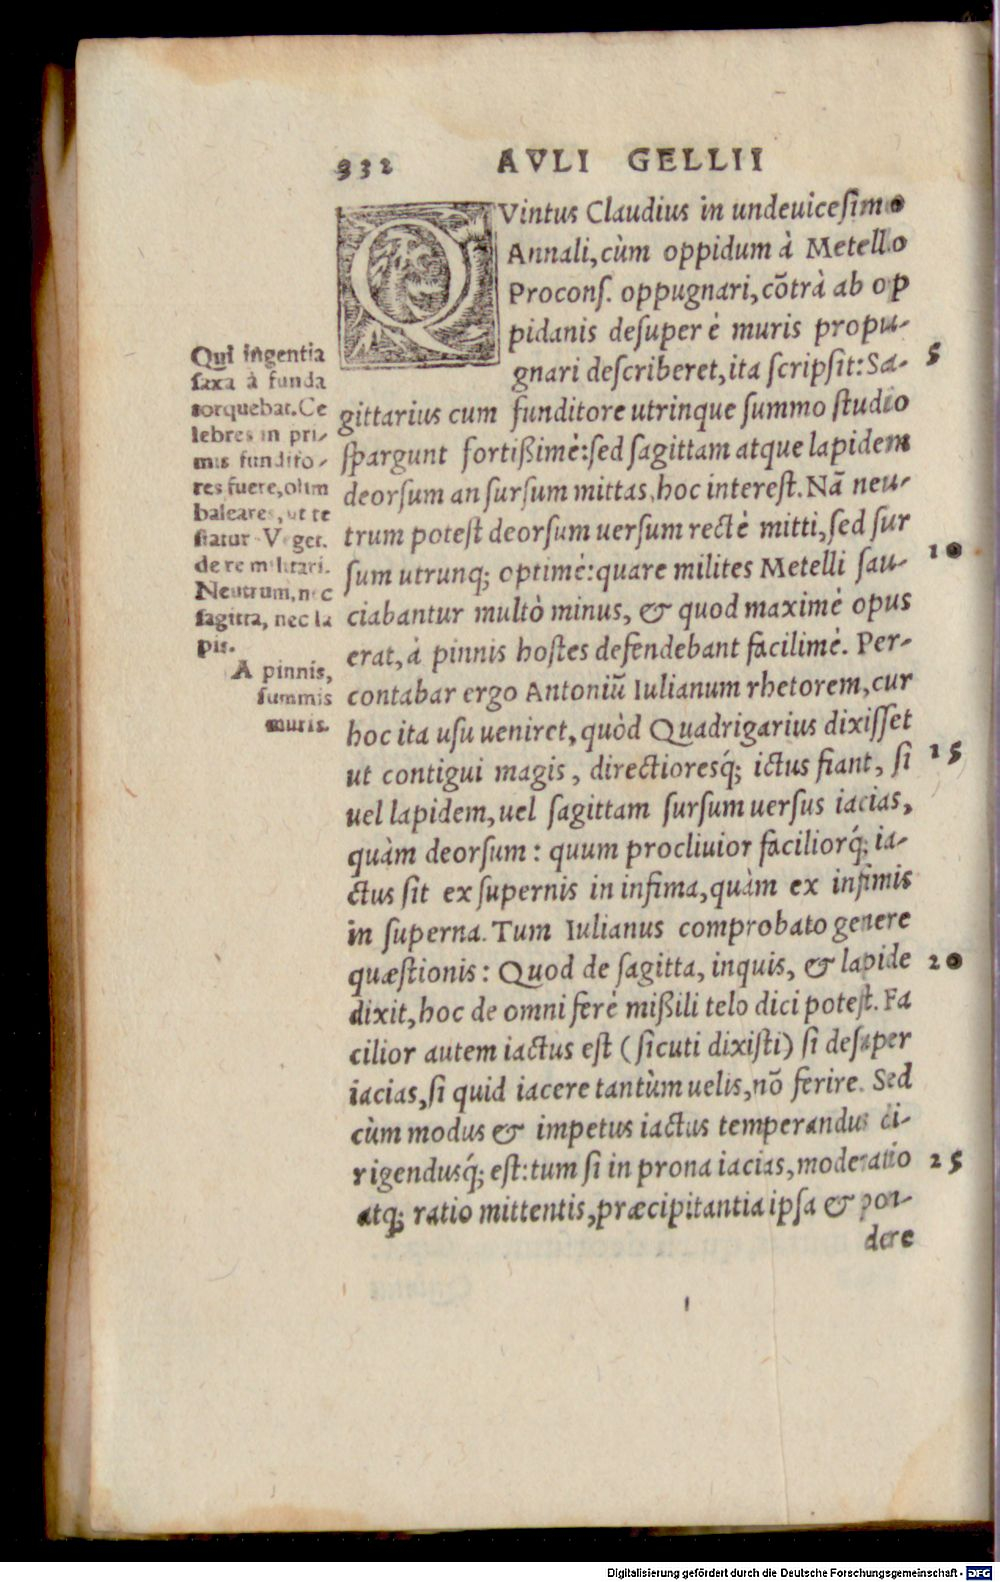 332 AVLI GELLII
QVintus Claudius in undeuicesimo
Annali, cùm oppidum à Metello
Procons. oppugnari, cõtrà ab op
pidanis desuper è muris propu-
gnari describeret, ita scripsit: Sa- 5
gittarius cum funditore utrinque summo studio
spargunt fortißimè: sed sagittam atque lapidem
deorsum an sursum mittas, hoc interest. Nã neu-
trum potest deorsum uersum rectè mitti, sed sur
sum utrunq; optimè: quare milites Metelli sau- 10
ciabantur multò minus, & quod maximè opus
erat, à pinnis hostes defendebant facilimè. Per-
contabar ergo Antoniũ Iulianum rhetorem, cur
hoc ita usu ueniret, quòd Quadrigarius dixisset
ut contigui magis, directioresq́; ictus fiant, si 15
uel lapidem, uel sagittam sursum uersus iacias,
quàm deorsum: quum procliuior faciliorq́; ia-
ctus sit ex supernis in infima, quàm ex infimis
in superna. Tum Iulianus comprobato genere
quæstionis: Quod de sagitta, inquis, & lapide 20
dixit, hoc de omni ferè mißili telo dici potest. Fa
cilior autem iactus est (sicuti dixisti) si desuper
iacias, si quid iacere tantùm uelis, nõ ferire. Sed
cùm modus & impetus iactus temperandus di-
rigendusq́; est: tum si in prona iacias, moderatio 25
atq; ratio mittentis, præcipitantia ipsa & pon-
dere
Qui ingentia
saxa à funda
torquebat. Ce
lebres in pri-
mis fundito-
res fuere, olim
baleares, ut te
statur Veget.
de re militari.
Neutrum, nec
sagitta, nec la
pis.
A pinnis,
summis
muris.
Digitalisierung gefördert durch die Deutsche Forschungsgemeinschaft - DFG